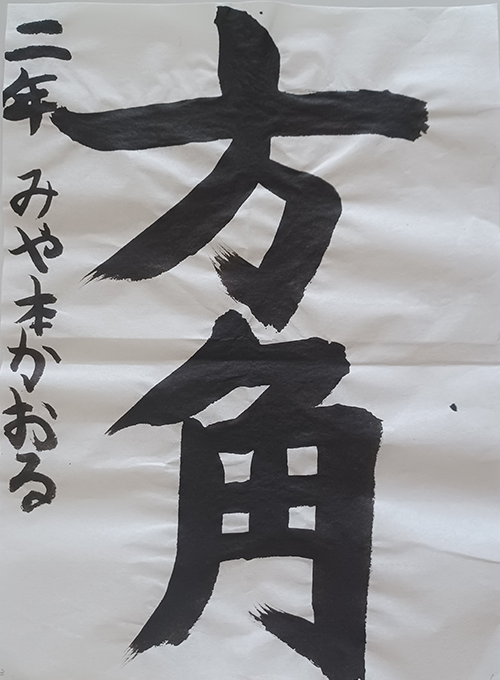 方角
三年 みや本かおる